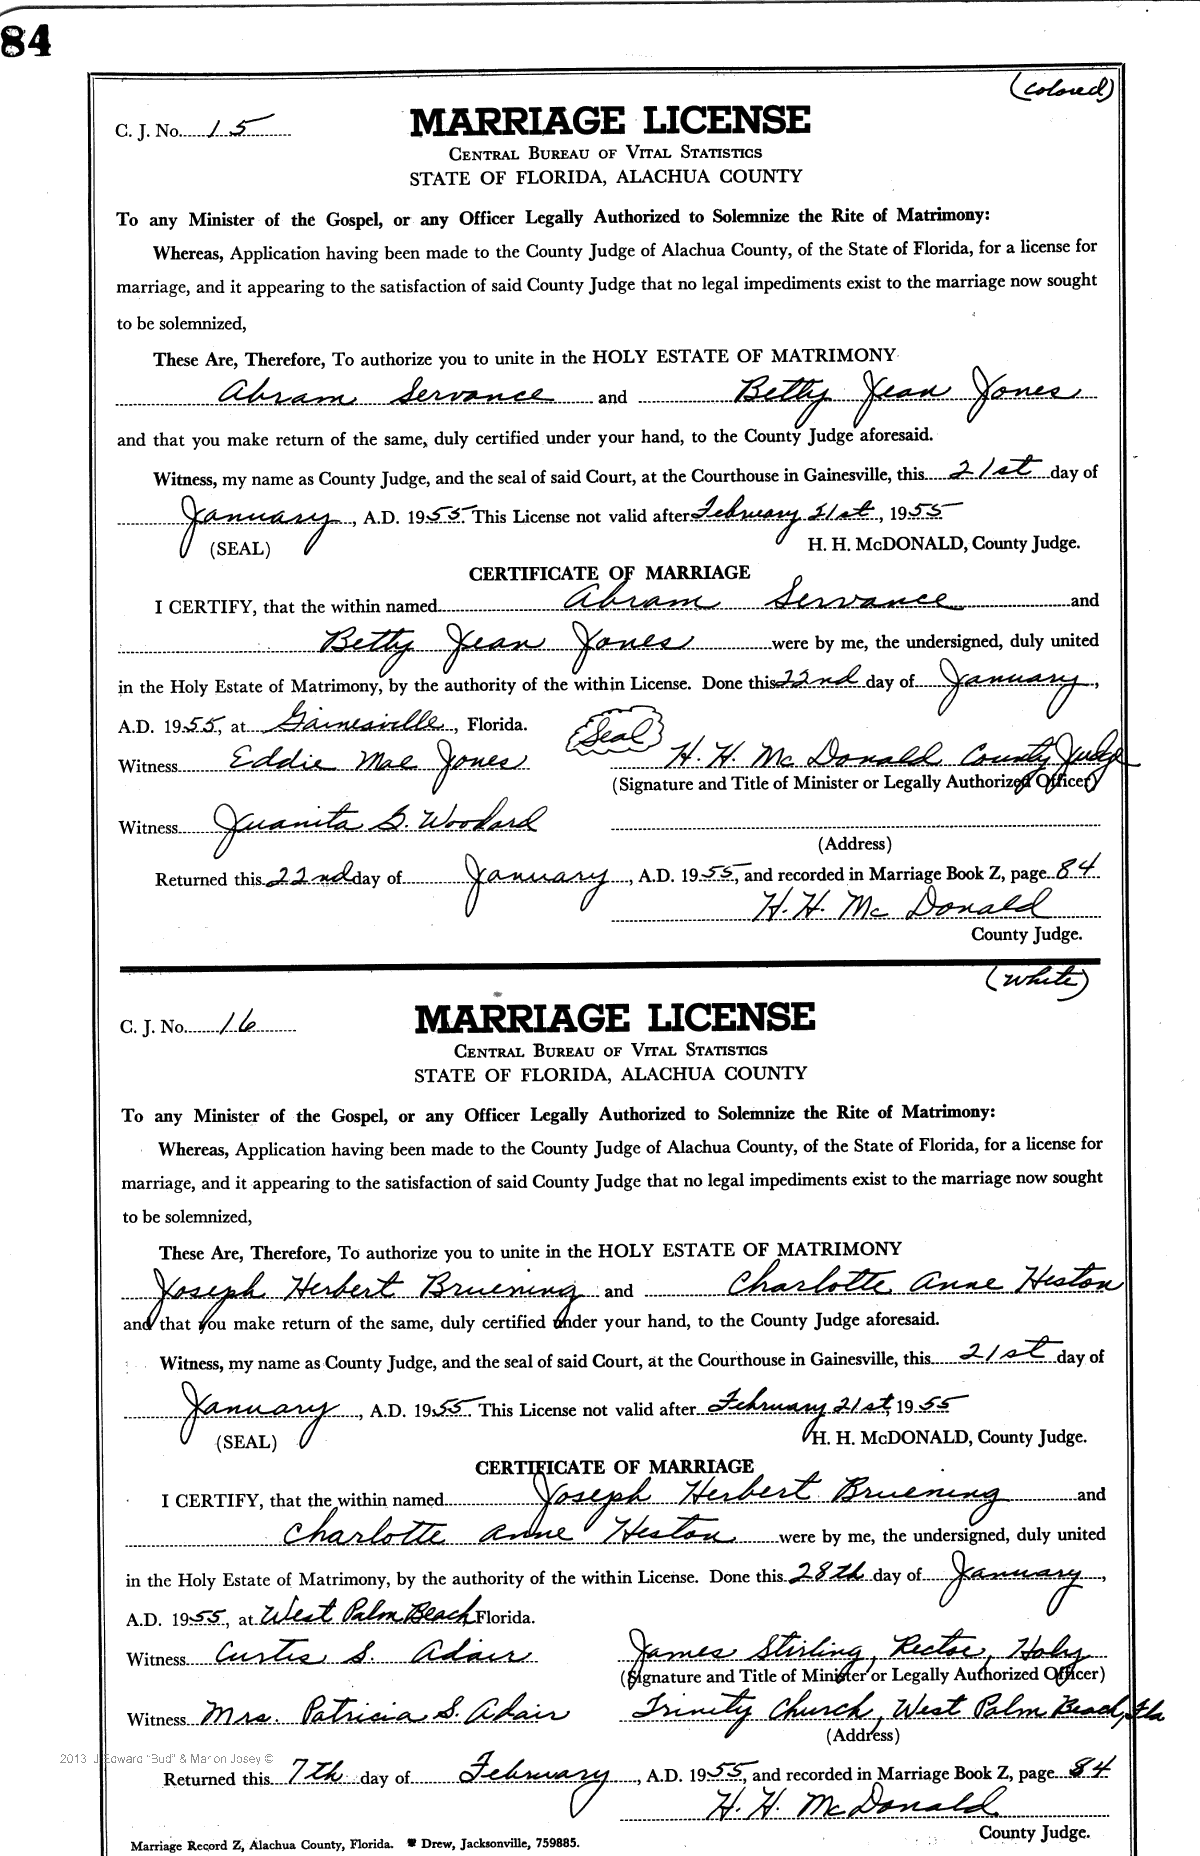 84
(colored)
C. J. No. 15
MARRIAGE LICENSE
CENTRAL BUREAU OF VITAL STATISTICS
STATE OF FLORIDA, ALACHUA COUNTY
To any Minister of the Gospel, or any Officer Legally Authorized to Solemnize the Rite of Matrimony:
Whereas, Application having been made to the County Judge of Alachua County, of the State of Florida, for a license for
marriage, and it appearing to the satisfaction of said County Judge that no legal impediments exist to the marriage now sought
to be solemnized,
These Are, Therefore, To authorize you to unite in the HOLY ESTATE OF MATRIMONY
Abram Servance and Betty Jean Jones
and that you make return of the same, duly certified under your hand, to the County Judge aforesaid.
Witness, my name as County Judge, and the seal of said Court, at the Courthouse in Gainesville, this 21st day of
January, A.D. 1955. This License not valid after February 21st, 1955
(SEAL) H. H. McDONALD, County Judge.
CERTIFICATE OF MARRIAGE
I CERTIFY, that the within named Abram Servance and
Betty Jean Jones were by me, the undersigned, duly united
in the Holy Estate of Matrimony, by the authority of the within License. Done this 22nd day of January,
A.D. 1955, at Gainesville, Florida. Seal
Witness Eddie Mae Jones H. H. McDonald County Judge
(Signature and Title of Minister or Legally Authorized Officer)
Witness Juanita G. Woodard
(Address)
Returned this 22nd day of January, A.D. 1955, and recorded in Marriage Book Z, page 84
H. H. McDonald
County Judge.
(white)
C. J. No. 16
MARRIAGE LICENSE
CENTRAL BUREAU OF VITAL STATISTICS
STATE OF FLORIDA, ALACHUA COUNTY
To any Minister of the Gospel, or any Officer Legally Authorized to Solemnize the Rite of Matrimony:
Whereas, Application having been made to the County Judge of Alachua County, of the State of Florida, for a license for
marriage, and it appearing to the satisfaction of said County Judge that no legal impediments exist to the marriage now sought
to be solemnized,
These Are, Therefore, To authorize you to unite in the HOLY ESTATE OF MATRIMONY
Joseph Herbert Bruening and Charlotte Anne Heston
and that you make return of the same, duly certified under your hand, to the County Judge aforesaid.
Witness, my name as County Judge, and the seal of said Court, at the Courthouse in Gainesville, this 21st day of
January, A.D. 1955. This License not valid after February 21st, 1955
(SEAL) H. H. McDONALD, County Judge.
CERTIFICATE OF MARRIAGE
I CERTIFY, that the within named Joseph Herbert Bruening and
Charlotte Anne Heston were by me, the undersigned, duly united
in the Holy Estate of Matrimony, by the authority of the within License. Done this 28th day of January,
A.D. 1955, at West Palm Beach Florida.
Witness Curtis S. Adair James Stirling, Rector, Holy
(Signature and Title of Minister or Legally Authorized Officer)
Witness Mrs. Patricia S. Adair Trinity Church, West Palm Beach, Fla
(Address)
2013 J Edward "Bud" & Marion Josey ©
Returned this 7th day of February, A.D. 1955, and recorded in Marriage Book Z, page 84
H. H. McDonald
County Judge.
Marriage Record Z, Alachua County, Florida. Drew, Jacksonville, 759885.